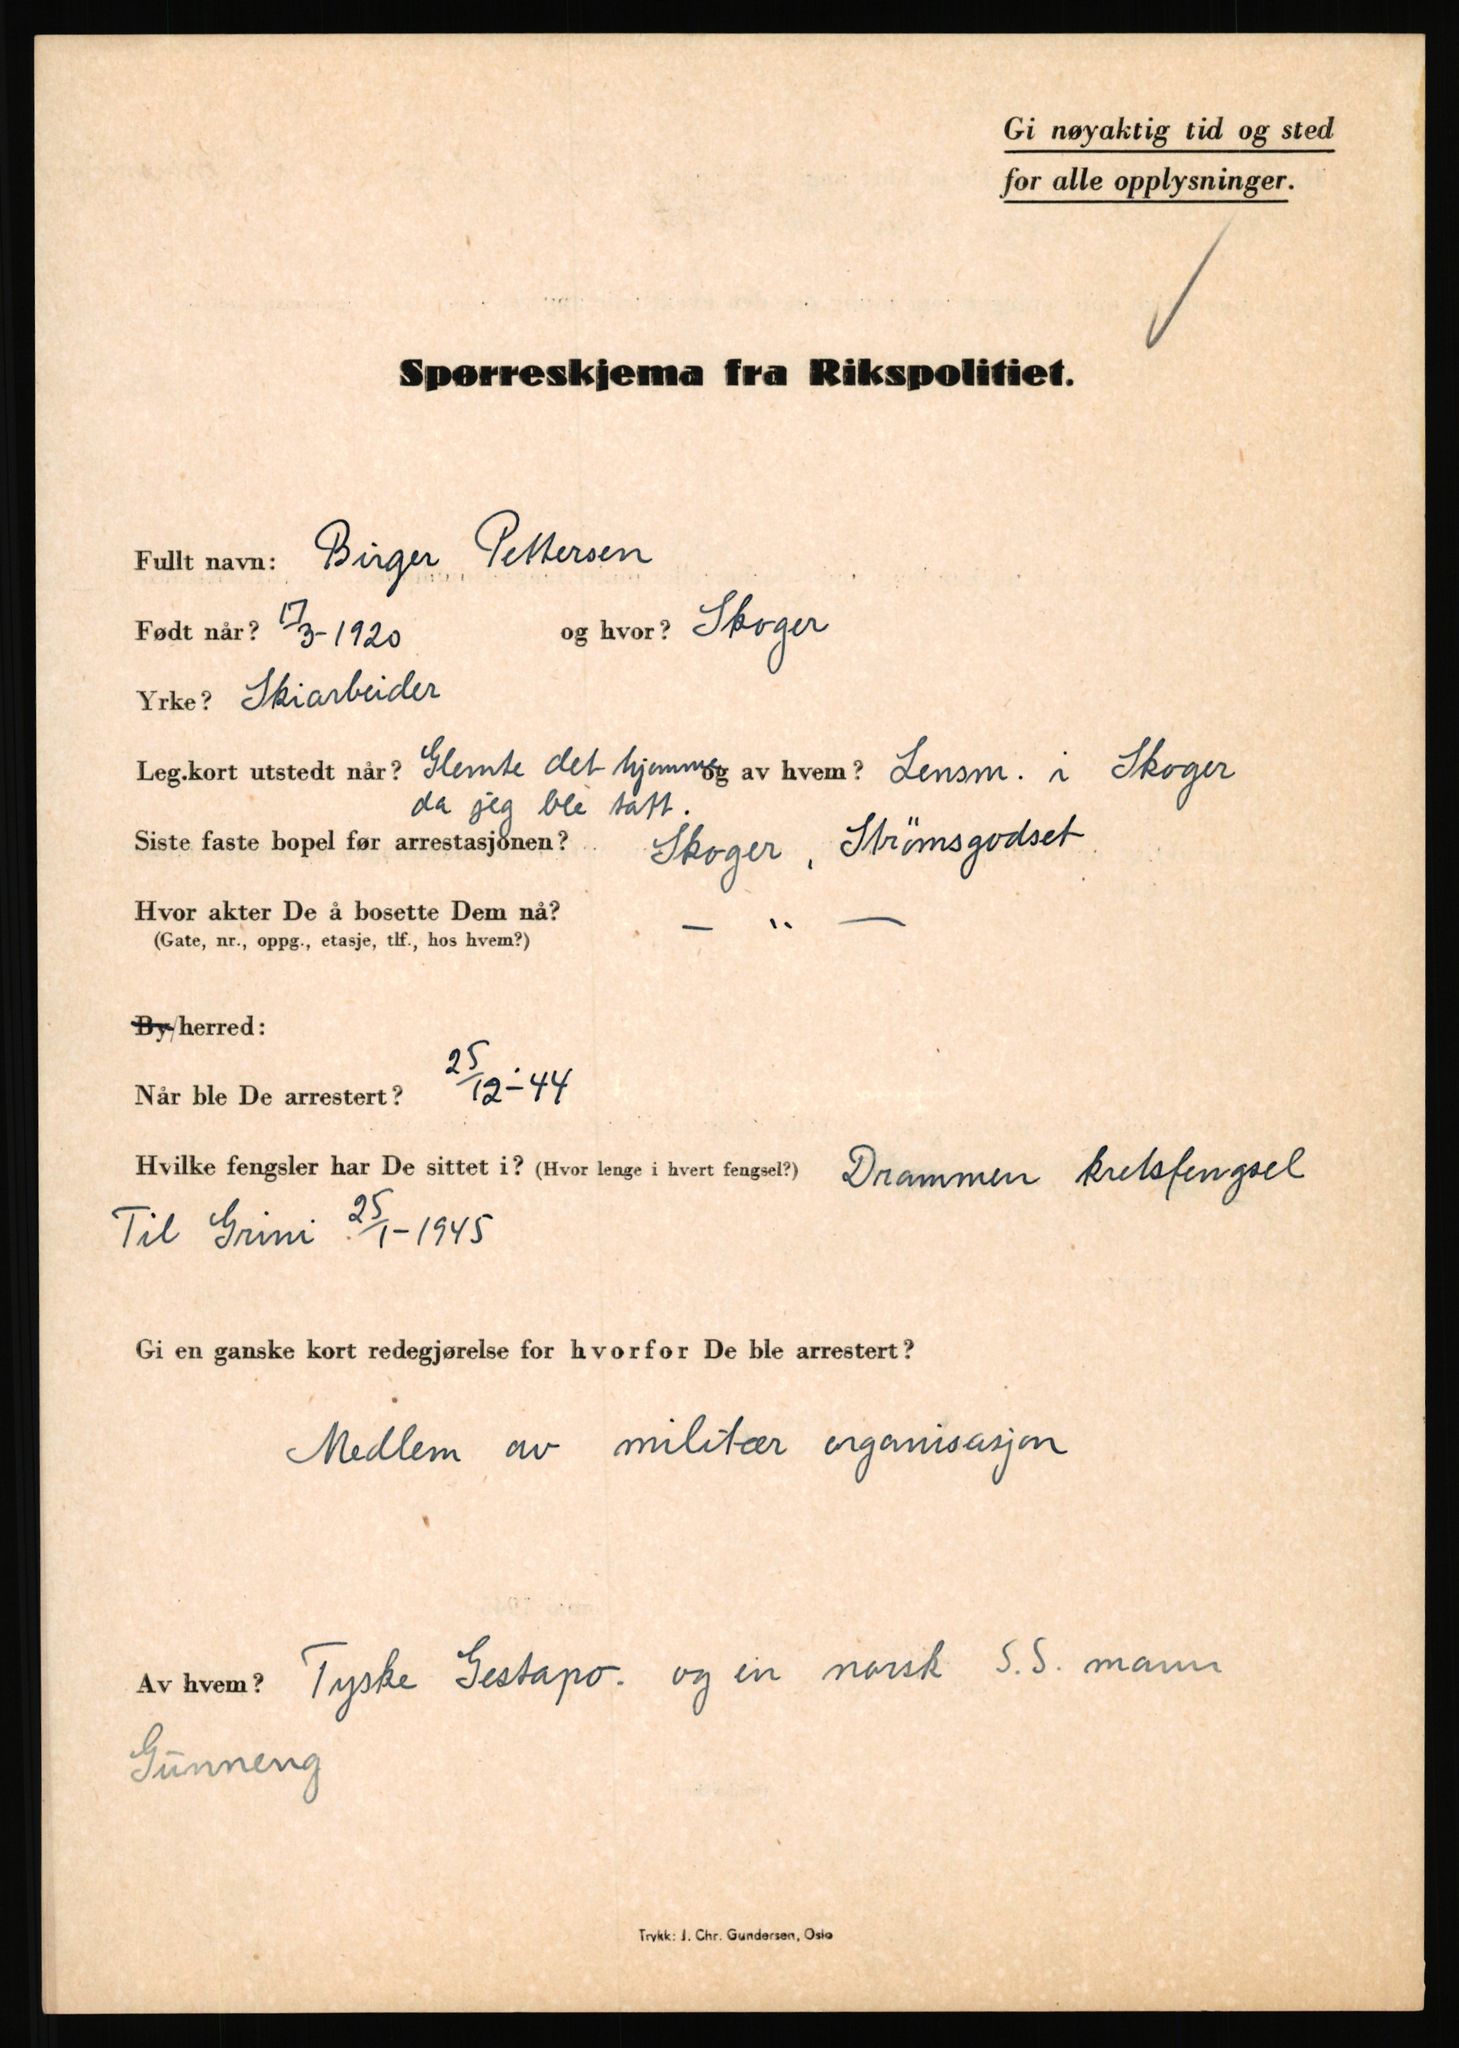 Gi nøyaktig tid og sted
for alle opplysninger.
Spørreskjema fra Rikspolitiet.
Fullt navn: Birger Pettersen
Født når? 17/3-1920 og hvor? Skoger
Yrke? Skiarbeider
Leg.kort utstedt når? Glemte det hjemme og av hvem? Lensm. i Skoger
da jeg ble tatt.
Siste faste bopel før arrestasjonen? Skoger, Strømsgodset
Hvor akter De å bosette Dem nå? — " —
(Gate, nr., oppg., etasje, tlf., hos hvem?)
By/herred:
Når ble De arrestert? 25/12-44
Hvilke fengsler har De sittet i? (Hvor lenge i hvert fengsel?) Drammen kretsfengsel
Til Grini 25/1-1945
Gi en ganske kort redegjørelse for hvorfor De ble arrestert?
Medlem av militær organisasjon
Av hvem? Tyske Gestapo. og en norsk S.S. mann
Gunneng
Trykk: J. Chr. Gundersen, Oslo